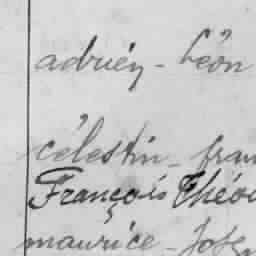 adrien - Léon
célestin - fran
François Théo
maurice - Jose